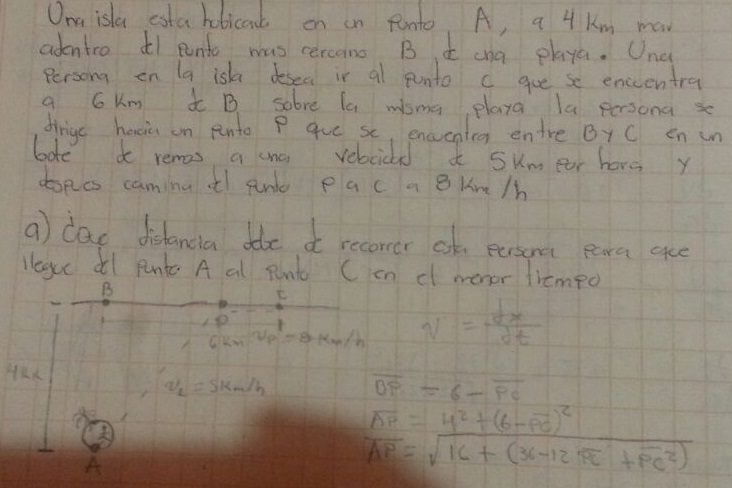 Una isla esta hubicada en un punto A, a 4 Km mar
adentro del punto mas cercano B de una playa. Una
Persona en la isla desea ir al punto C que se encuentra
a 6 Km de B sobre la misma playa la persona se
dirige hacia un punto P que se encuentra entre B y C en un
bote de remos a una velocidad de 5 Km por hora y
despues camina del punto P a C a 8 Km/h
a) ¿que distancia debe de recorrer esta persona para que
llegue del punto A al punto C en el menor tiempo
B P C
6 Km
V = dx/dt
4 km
= 5 Km/h
BP = 6 - PC
AP = 4² + (6-PC)²
AP = √16 + (36-12 PC + PC²)
A